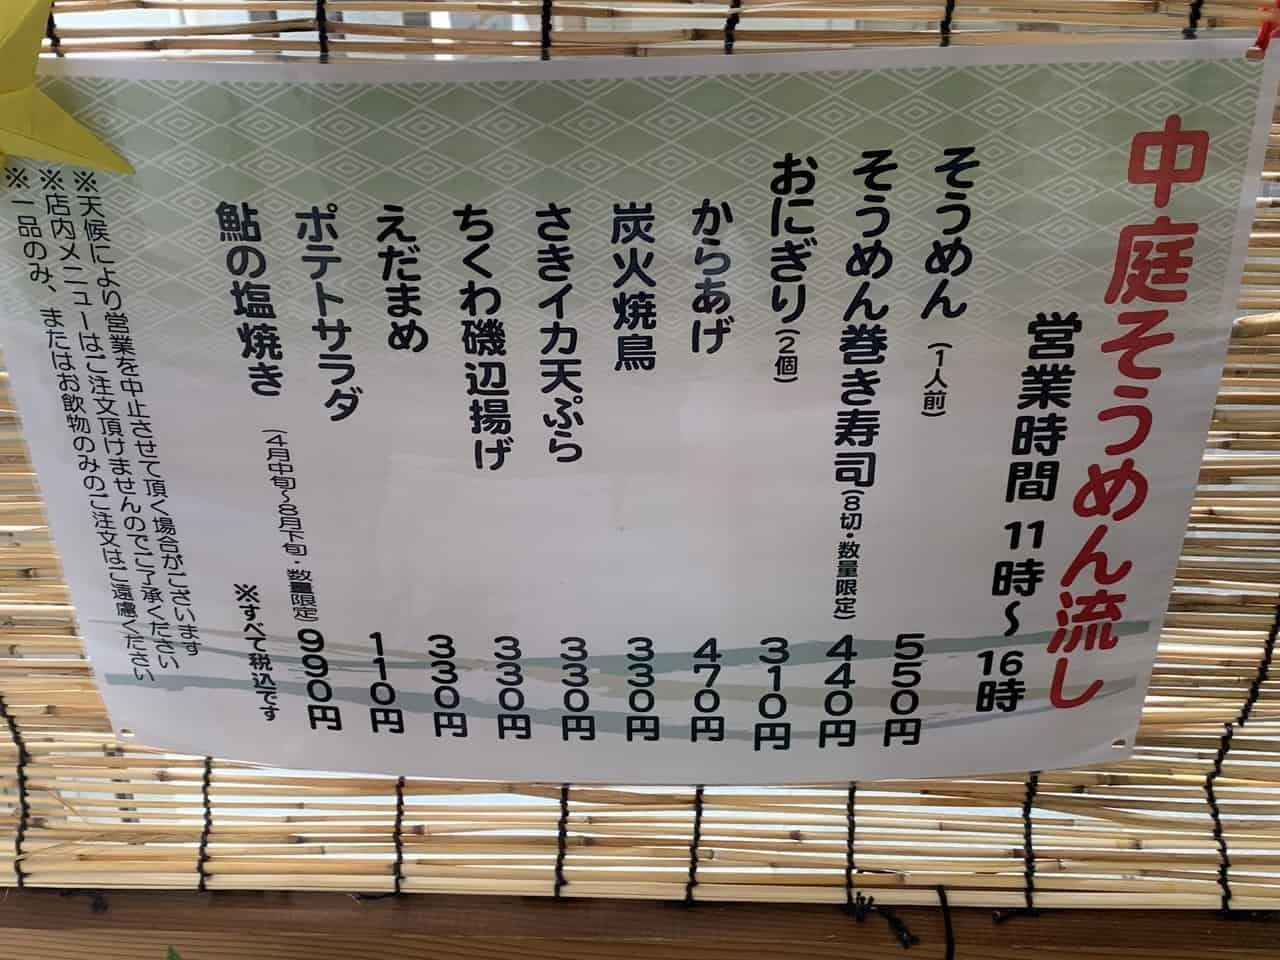 中庭そうめん流し
営業時間 11時～16時
そうめん(1人前) 550円
そうめん巻き寿司(8切・数量限定) 440円
おにぎり(2個) 310円
からあげ 470円
炭火焼鳥 330円
さきイカ天ぷら 330円
ちくわ磯辺揚げ 330円
えだまめ 330円
ポテトサラダ 110円
鮎の塩焼き(4月中旬～8月下旬・数量限定) 990円
※すべて税込です
※天候により営業を中止させて頂く場合がございます
※店内メニューはご注文頂けませんのでご了承ください
※一品のみ、またはお飲物のみのご注文はご遠慮ください